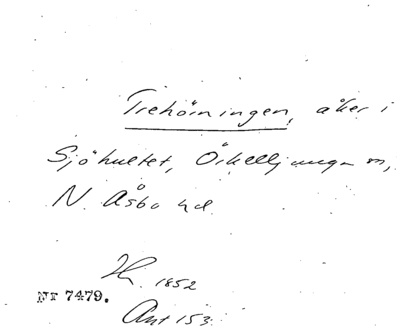 Trehörningen, åker i
Sjöhultet, Örkelljunga sn,
N. Åsbo hd.
1852
Nr 7479.
Ant 153.